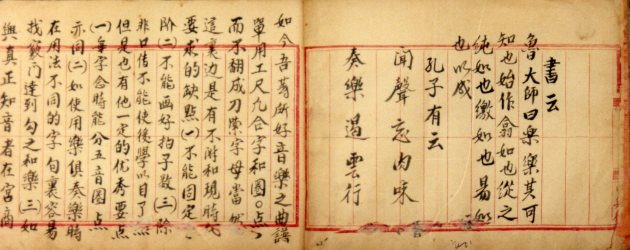 書云
魯大師曰樂樂其可
知也始作翕如也從之
純如也繳如也易如
也以成
孔子有云
聞聲忘肉味
奏樂遏雲行
如今吾等所好音樂之曲譜
單用工尺九合字和圈〇點、
而不翻成刀蒙字母當然
這裏边是有不附和現時代
要求的缺點(一)不能固定
阶(二)不能画好拍子数(三)除
非口传不能使後學以目了
但是也有他一定的优秀要点
(一)每字念時能分五音圈点
亦同(二)如使用樂俱奏樂時
在用法不同的字句裏容易
找竅门達到勾之和樂(三)如
與真正知音者在宫商